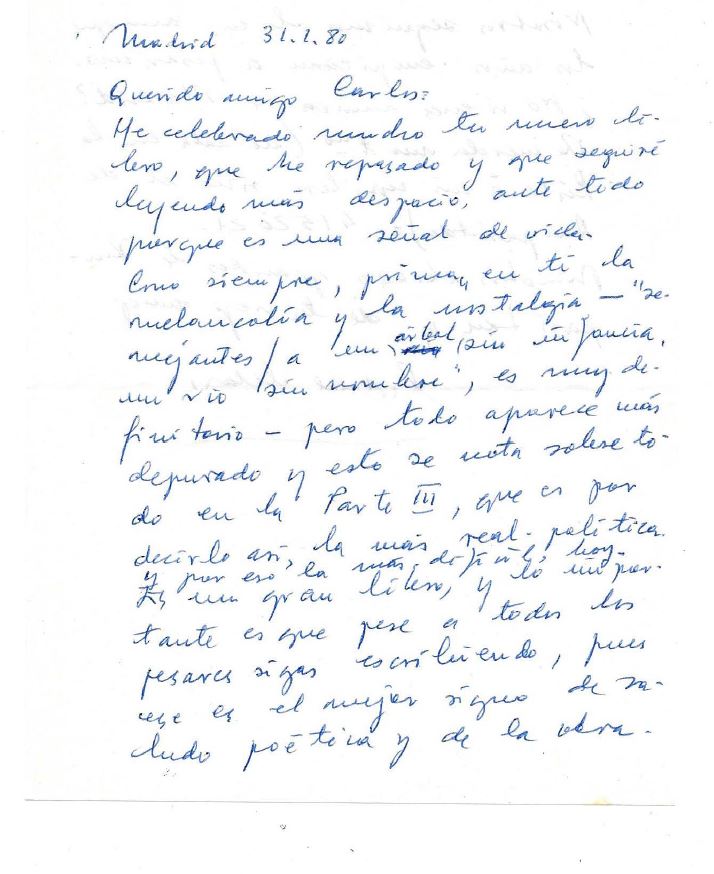 Madrid 31.1.80
Querido amigo Carlos:
He celebrado mucho tu nuevo li-
bro, que he repasado y que seguiré
leyendo más despacio, ante todo
porque es una señal de vida.
Como siempre, prima en ti la
melancolía y la nostalgia — "se-
mejantes / a un árbol sin infancia,
un río sin nombre", es muy de-
finitorio — pero todo aparece más
depurado y esto se nota sobre to-
do en la Parte III, que es por
decirlo así, la más real-política.
y por eso la más difícil, hoy.
Es un gran libro, y lo impor-
tante es que pese a todos los
pesares sigas escribiendo, pues
ese es el mejor signo de sa-
lud poética y de la obra.